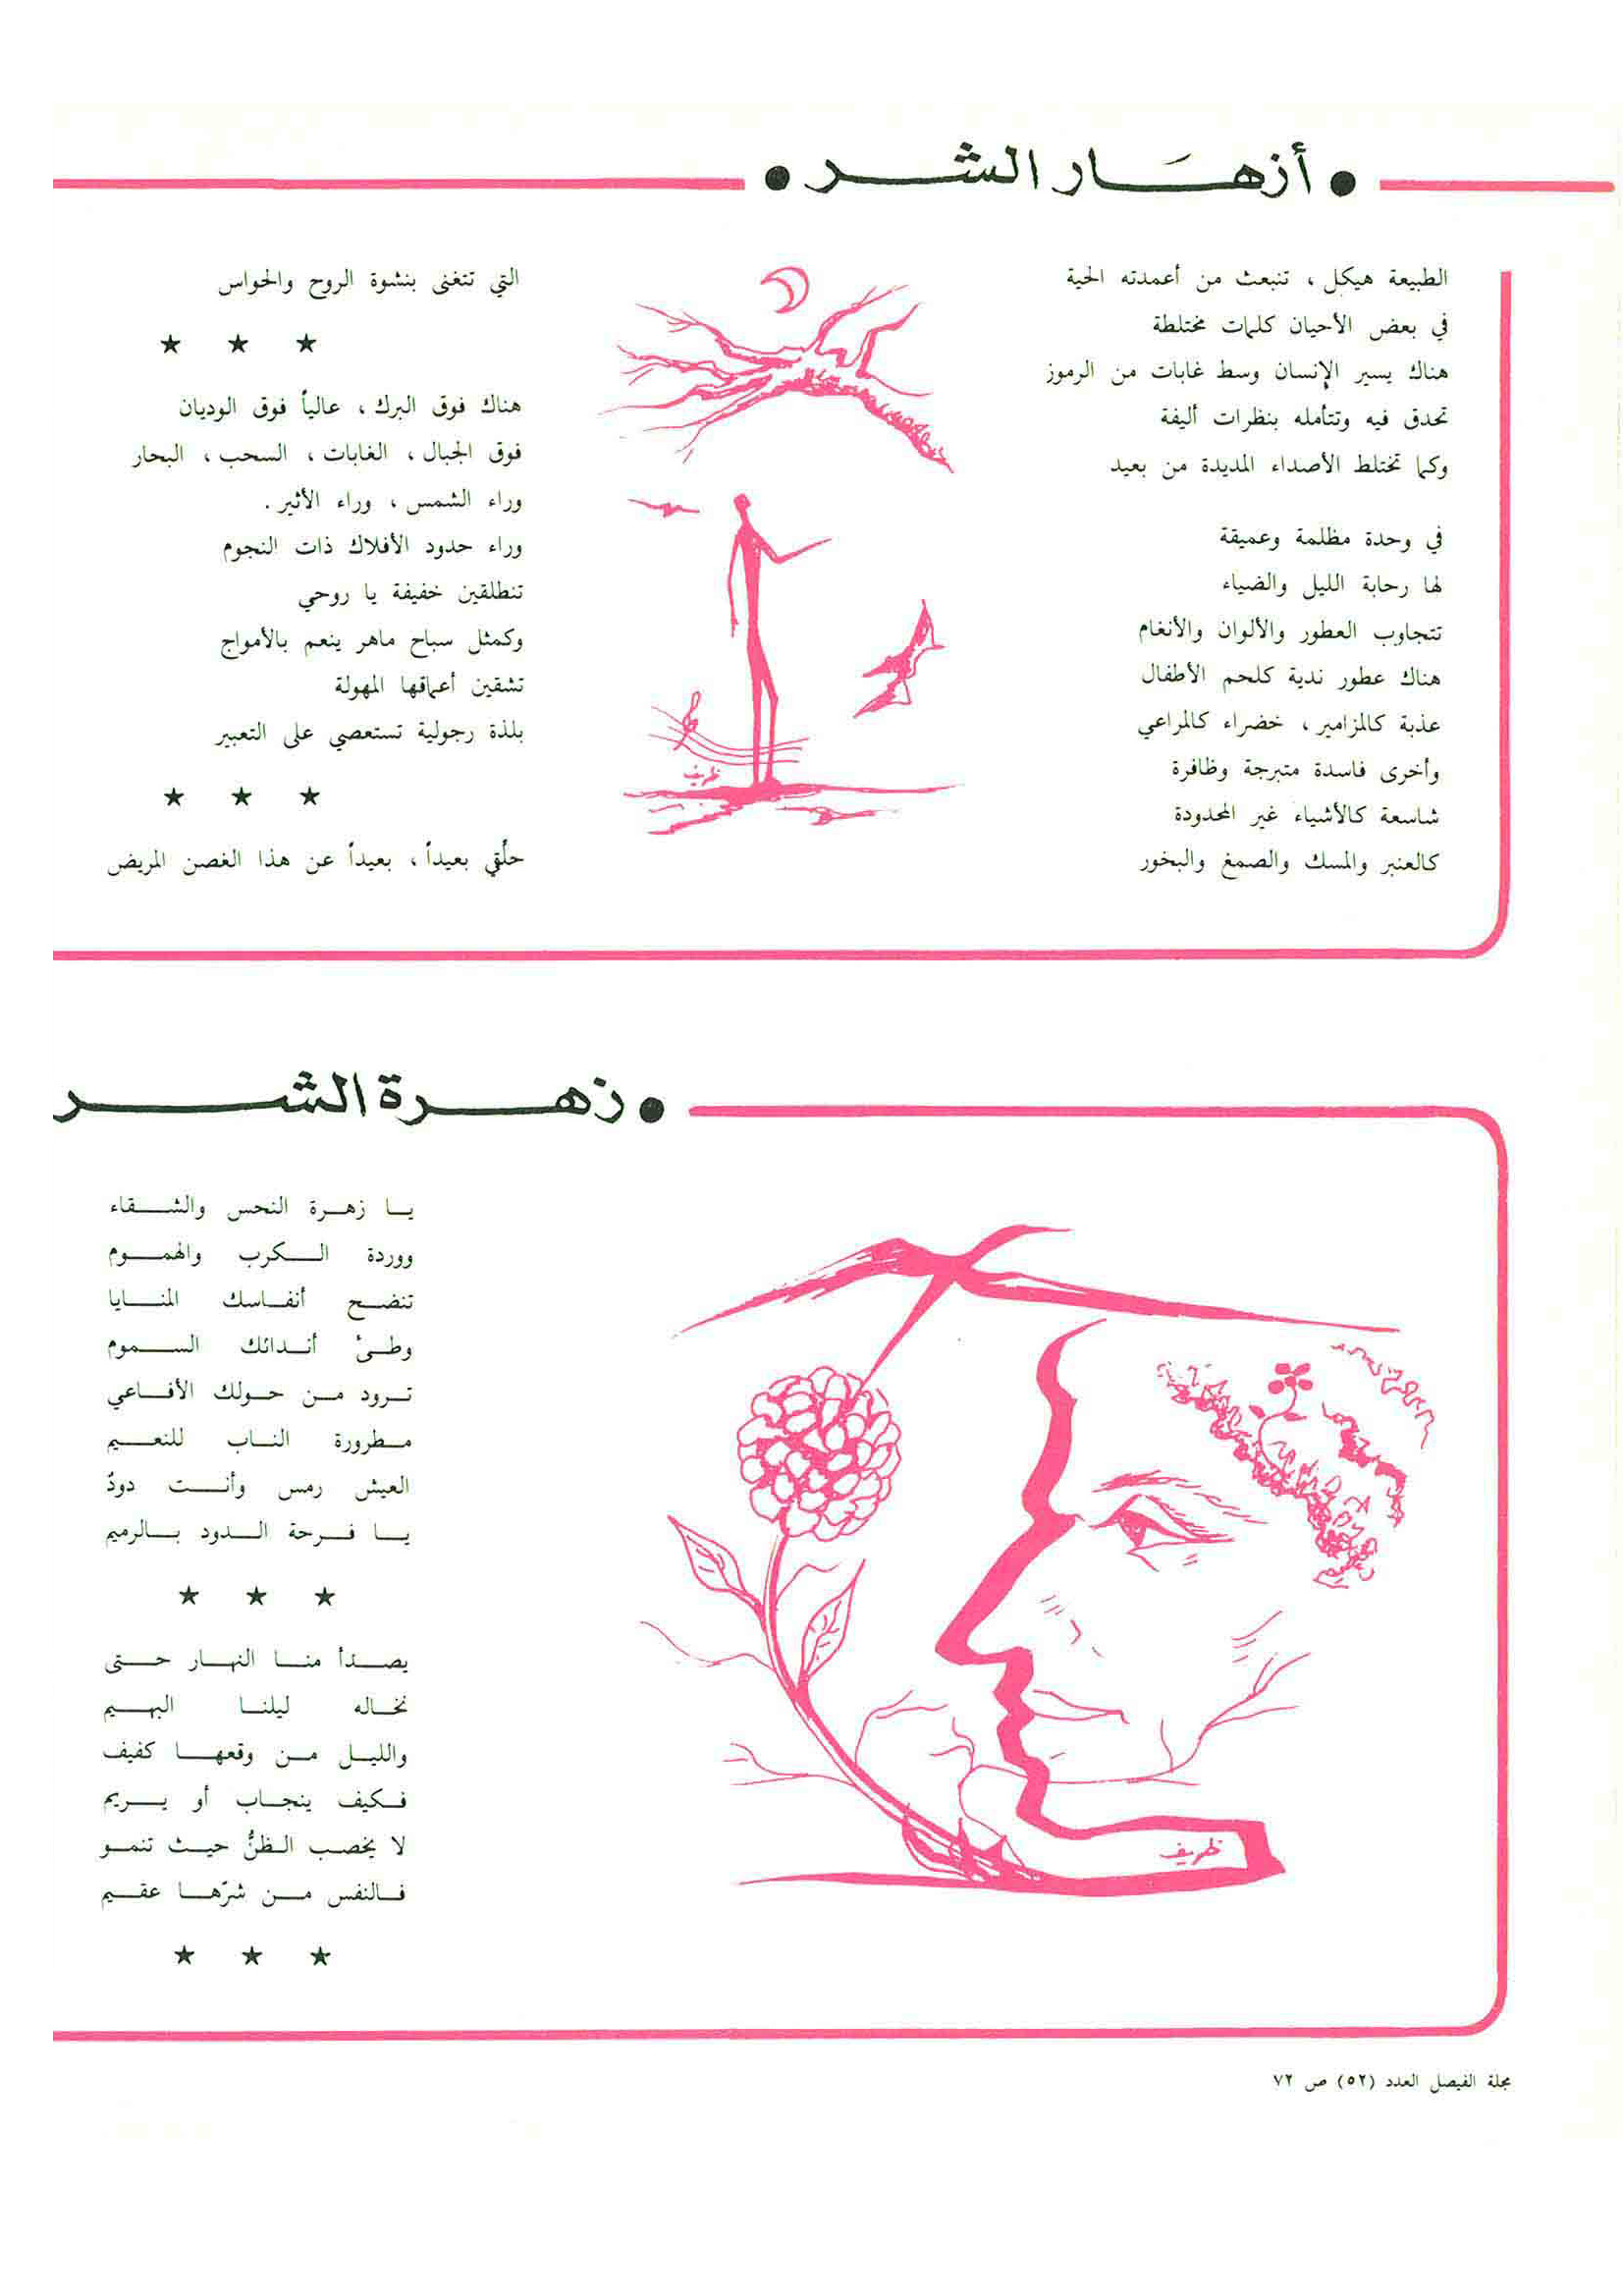 • أزهَار الشر •
الطبيعة هيكل ، تنبعث من أعمدته الحية
في بعض الأحيان كلمات مختلطة
هناك يسير الإنسان وسط غابات من الرموز
تحدق فيه وتتأمله بنظرات أليفة
وكما تختلط الأصداء المديدة من بعيد
في وحدة مظلمة وعميقة
لها رحابة الليل والضياء
تتجاوب العطور والألوان والأنغام
هناك عطور ندية كلحم الأطفال
عذبة كالمزامير ، خضراء كالمراعي
وأخرى فاسدة متبرجة وظافرة
شاسعة كالأشياء غير المحدودة
كالعنبر والمسك والصمغ والبخور
ظريف
التي تتغنى بنشوة الروح والحواس
★ ★ ★
هناك فوق البرك ، عالياً فوق الوديان
فوق الجبال ، الغابات ، السحب ، البحار
وراء الشمس ، وراء الأثير .
وراء حدود الأفلاك ذات النجوم
تنطلقين خفيفة يا روحي
وكمثل سباح ماهر ينعم بالأمواج
تشقين أعماقها المهولة
بلذة رجولية تستعصي على التعبير
★ ★ ★
حلّقي بعيداً ، بعيداً عن هذا الغصن المريض
• زهرة الشر
يا زهرة النحس والشقاء
ووردة الكرب والهموم
تنضح أنفاسك المنايا
وطيُ أندائك السموم
ترود من حولك الأفاعي
مطرورة الناب للنعيم
العيش رمس وأنت دودٌ
يا فرحة الدود بالرميم
★ ★ ★
يصدأ منا النهار حتى
نخاله ليلنا البهيم
والليل من وقعها كفيف
فكيف ينجاب أو يريم
لا يخصب الظنُّ حيث تنمو
فالنفس من شرّها عقيم
★ ★ ★
ظريف
مجلة الفيصل العدد (٥٢) ص ٧٢